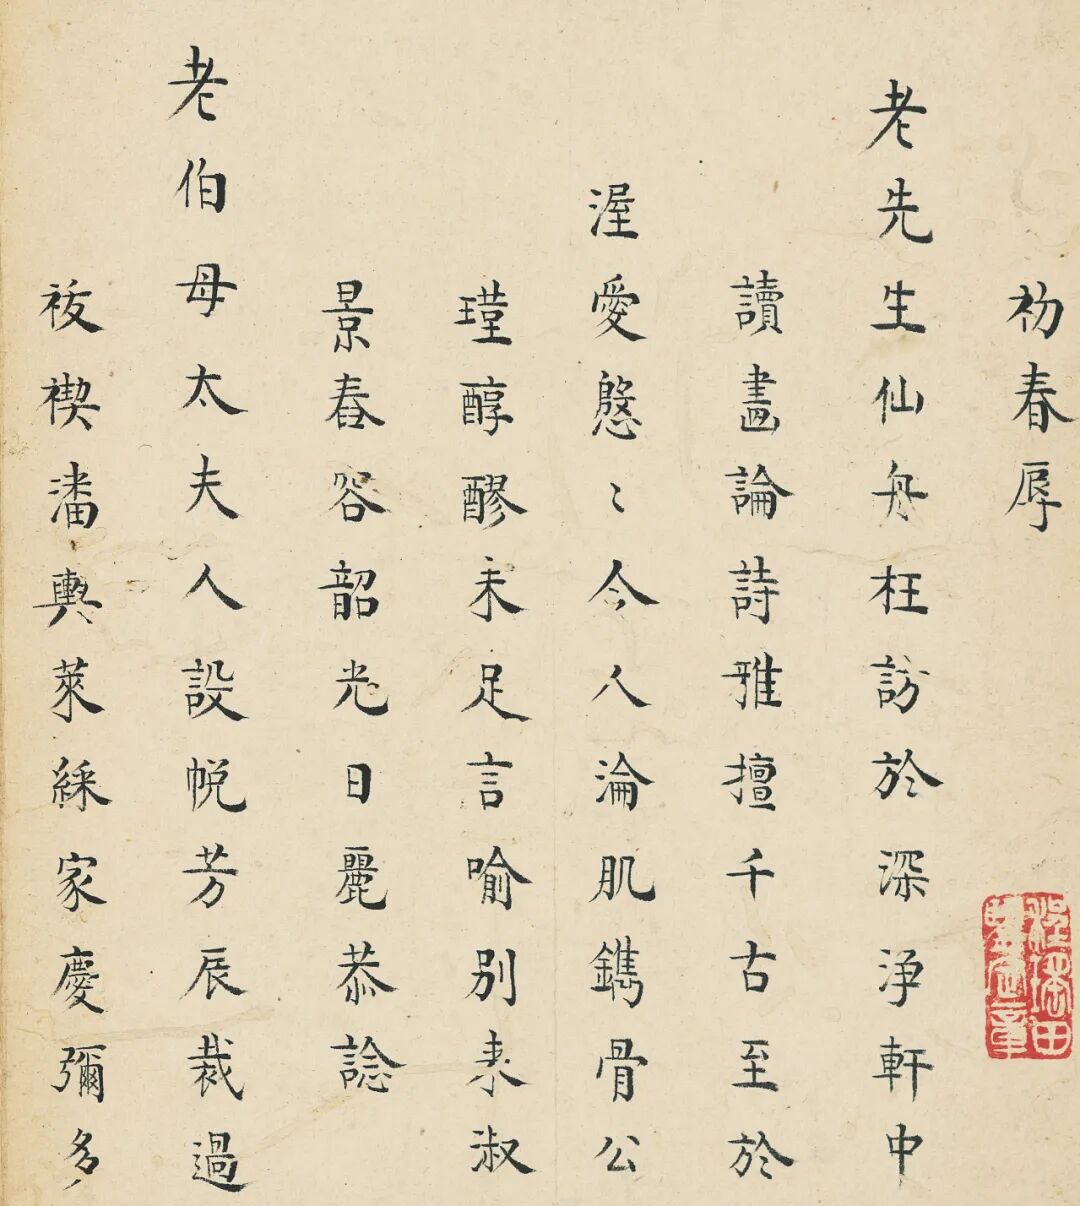 初春辱
老先生仙舟枉訪於深淨軒中
讀畫論詩雅擅千古至於
渥愛慇〻令人淪肌鐫骨公
瑾醇醪未足言喻別來淑
景舂容韶光日麗恭諗
老伯母太夫人設帨芳辰裁過
祓禊潘輿萊綵家慶彌多